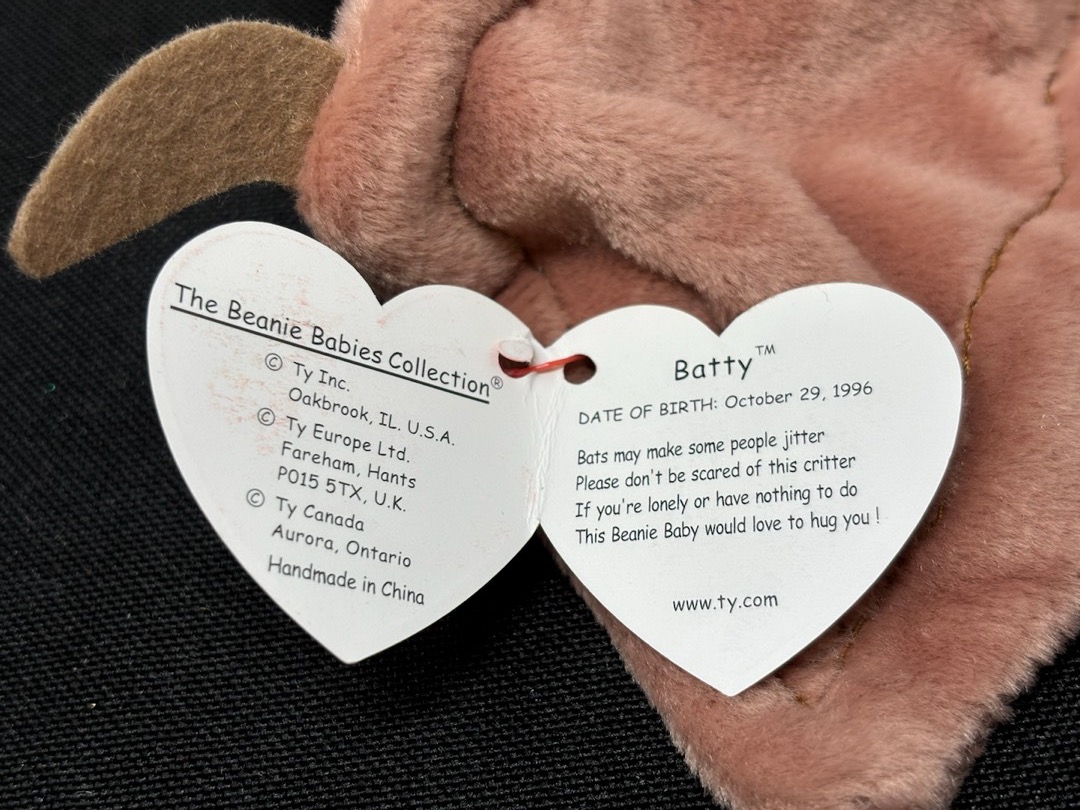 The Beanie Babies Collection®
© Ty Inc.
Oakbrook, IL. U.S.A.
© Ty Europe Ltd.
Fareham, Hants
P015 5TX, U.K.
© Ty Canada
Aurora, Ontario
Handmade in China
Batty™
DATE OF BIRTH: October 29, 1996
Bats may make some people jitter
Please don't be scared of this critter
If you're lonely or have nothing to do
This Beanie Baby would love to hug you !
www.ty.com